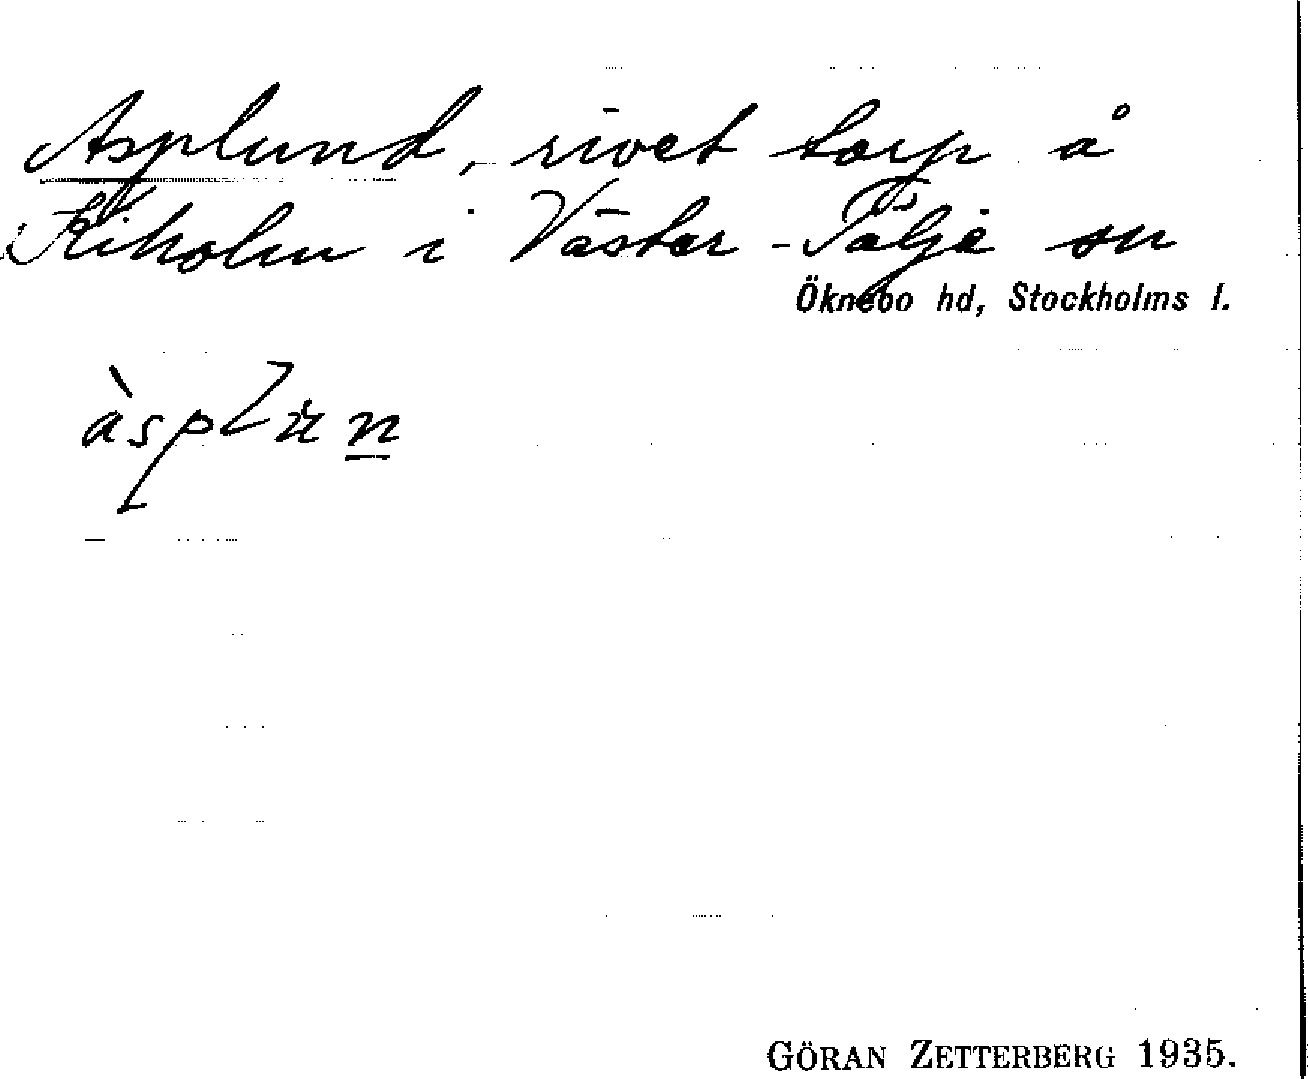 Asplund, rivet torp å
Kiholm i Väster-Tälje sn
Öknebo hd, Stockholms l.
àsplun
GÖRAN ZETTERBERG 1935.